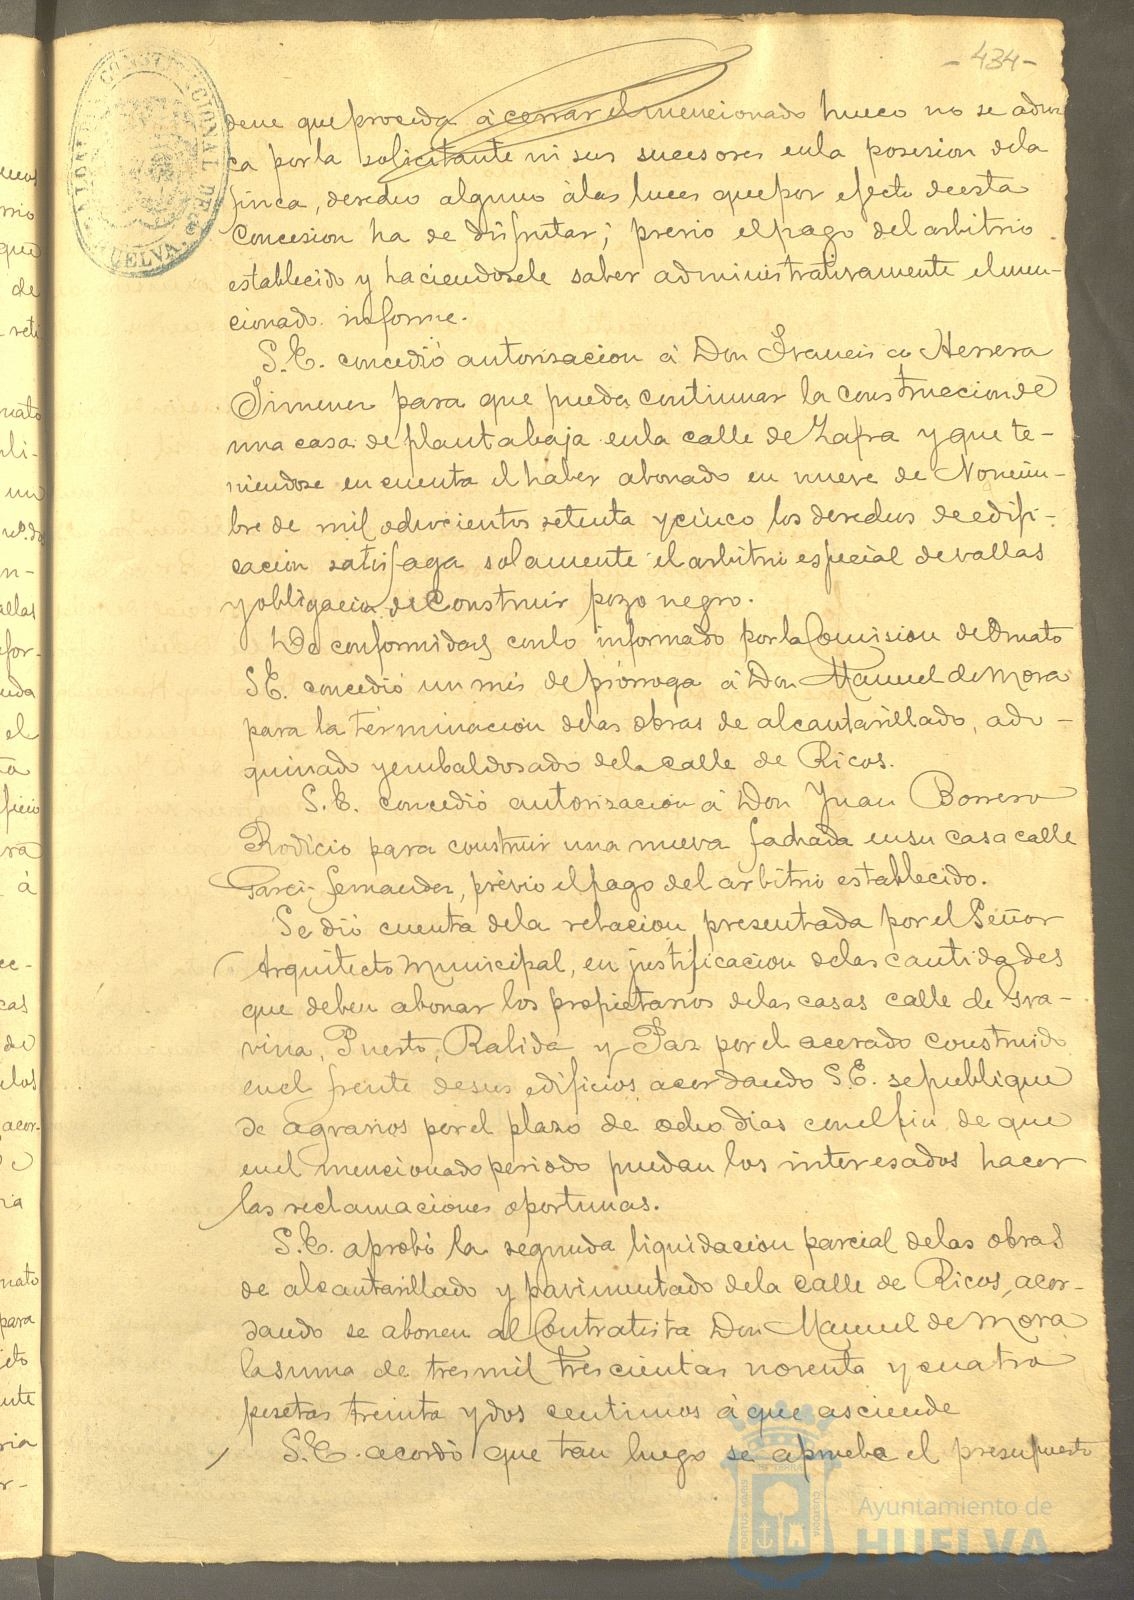 - 434 -
dene que proceda á cerrar el mencionado hueco no se aduz-
ca por la solicitante ni sus sucesores en la posesion de la
finca, derecho alguno á las luces que por efecto de esta
Concesion ha de disfrutar; previo el pago del arbitrio
establecido y haciendosele saber administrativamente el men-
cionado informe.
S. E. concedió autorizacion á Don Francisco Herrera
Jimenez para que pueda continuar la construccion de
una casa de planta baja en la calle de Zafra y que te-
niendose en cuenta el haber abonado en nueve de Noviem-
bre de mil ochocientos setenta y cinco los derechos de edifi-
cacion satisfaga solamente el arbitrio especial de vallas
y obligacion de Construir pozo negro.
De conformidad con lo informado por la Comision de Ornato
S. E. concedió un mes de prórroga á Don Manuel de Mora
para la terminacion de las obras de alcantarillado, ado-
quinado y embaldosado de la calle de Ricos.
S. E. concedió autorizacion á Don Juan Borrero
Rodicio para construir una nueva fachada en su casa calle
Garci-Fernandez, prévio el pago del arbitrio establecido.
Se dió cuenta de la relacion presentada por el Señor
Arquitecto Municipal, en justificacion de las cantidades
que deben abonar los propietarios de las casas calle de Gra-
vina, Puerto, Rabida y Paz por el acerado construido
en el frente de sus edificios acordando S. E. se publique
de agravios por el plazo de ocho dias con el fin de que
en el mencionado periodo puedan los interesados hacer
las reclamaciones oportunas.
S. E. aprobó la segunda liquidacion parcial de las obras
de alcantarillado y pavimentado de la calle de Ricos, acor-
dando se abonen al Contratista Don Manuel de Mora
la suma de tres mil trescientas noventa y cuatro
pesetas treinta y dos centimos á que asciende
S. E. acordó que tan luego se apruebe el presupuesto
CONSTITUCIONAL DE
HUELVA
PORTUS MARIS
CUSTODIA
Ayuntamiento de
HUELVA